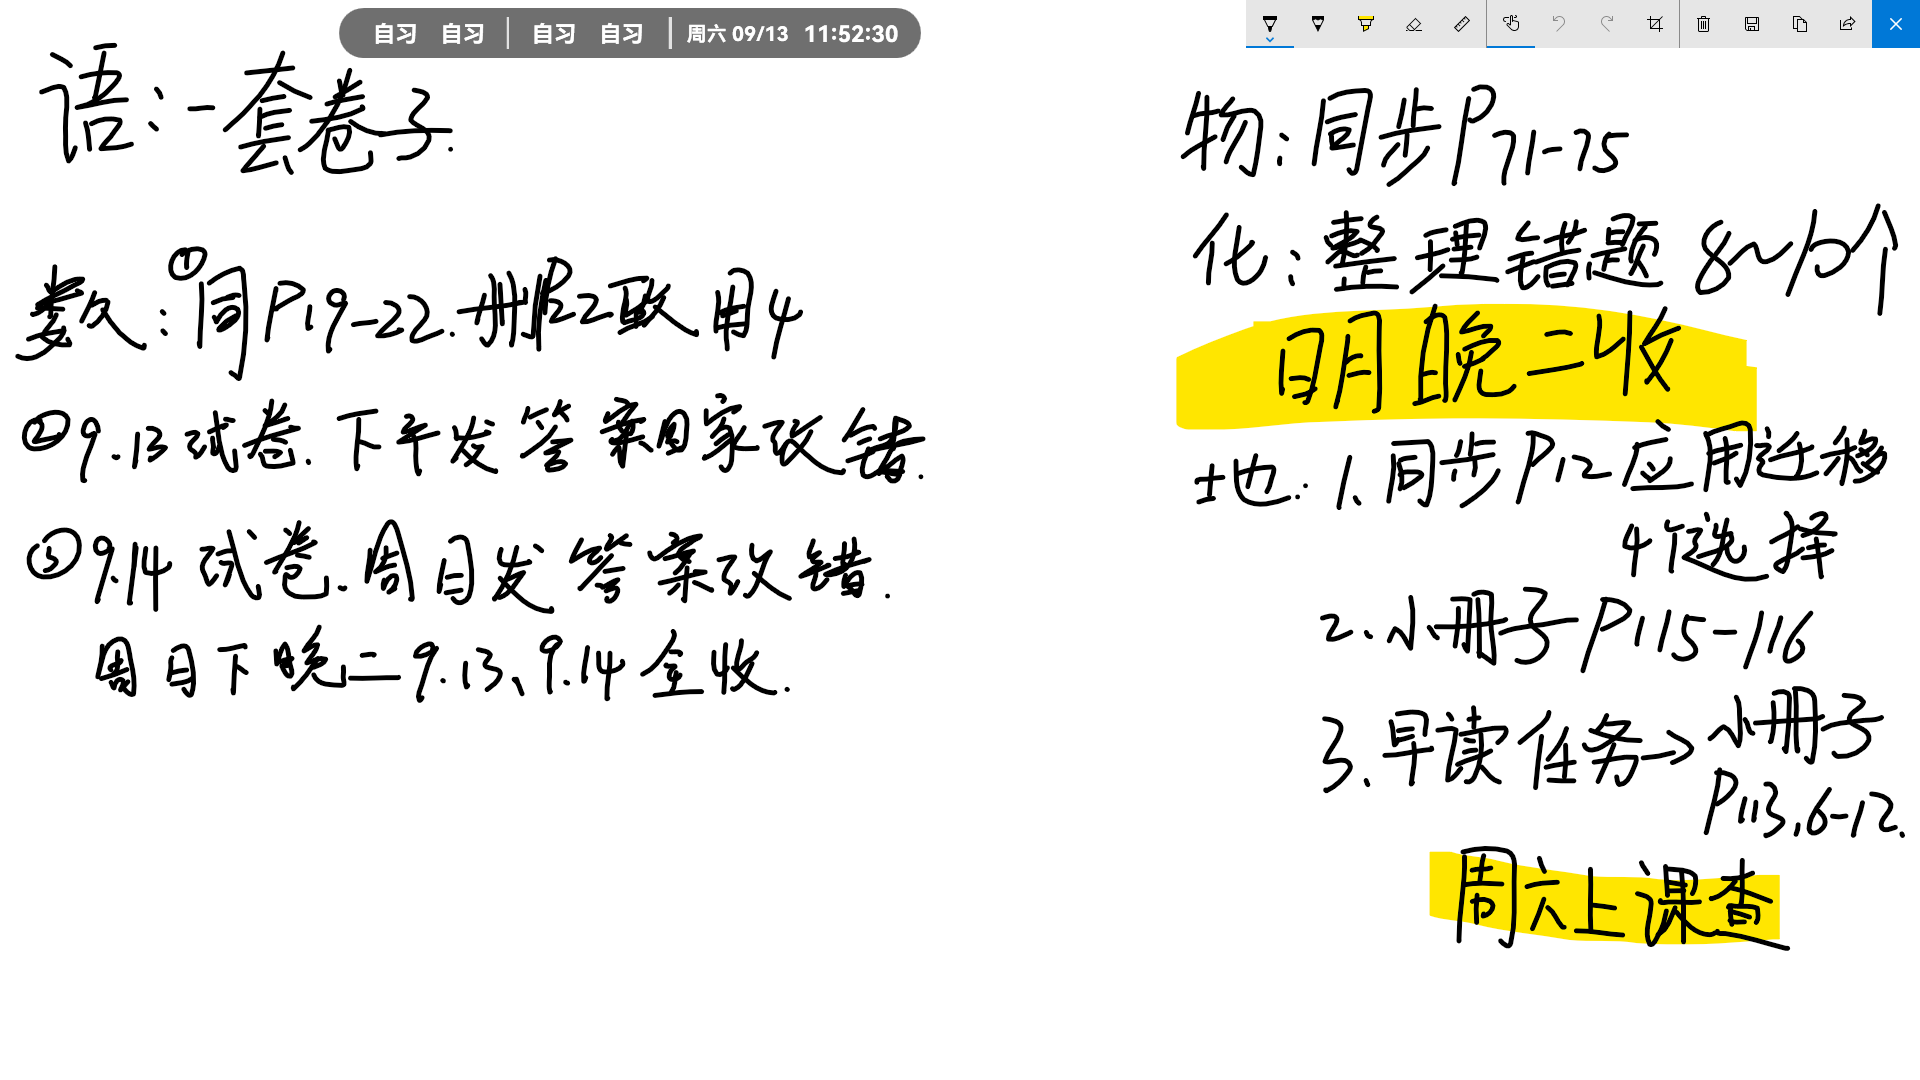 自习 自习 | 自习 自习 | 周六 09/13 11:52:30
语:一套卷子.
数:①同P19-22.册P22 致用4
②9.13试卷.下午发答案回家改错.
③9.14试卷.周日发答案改错.
周日下晚二9.13、9.14全收.
物:同步P71-75
化:整理错题8~10个
明晚二收
地.1、同步P12应用迁移
4个选择
2.小册子P115-116
3.早读任务→小册子
P113,6-12.
周六上课查